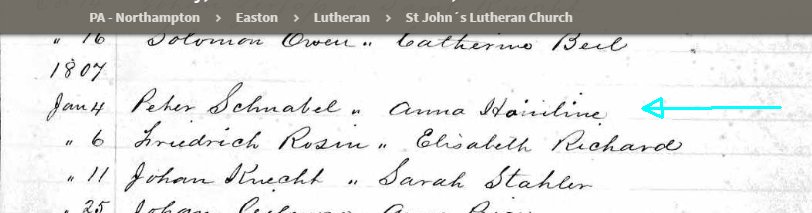 PA - Northampton > Easton > Lutheran > St John´s Lutheran Church
" 16 Solomon Owen " Catherine Beil
1807
Jan 4 Peter Schnabel " Anna Hainline
" 6 Friedrich Rosin " Elisabeth Richard
" 11 Johan Knecht " Sarah Stahler
" 25 Johan